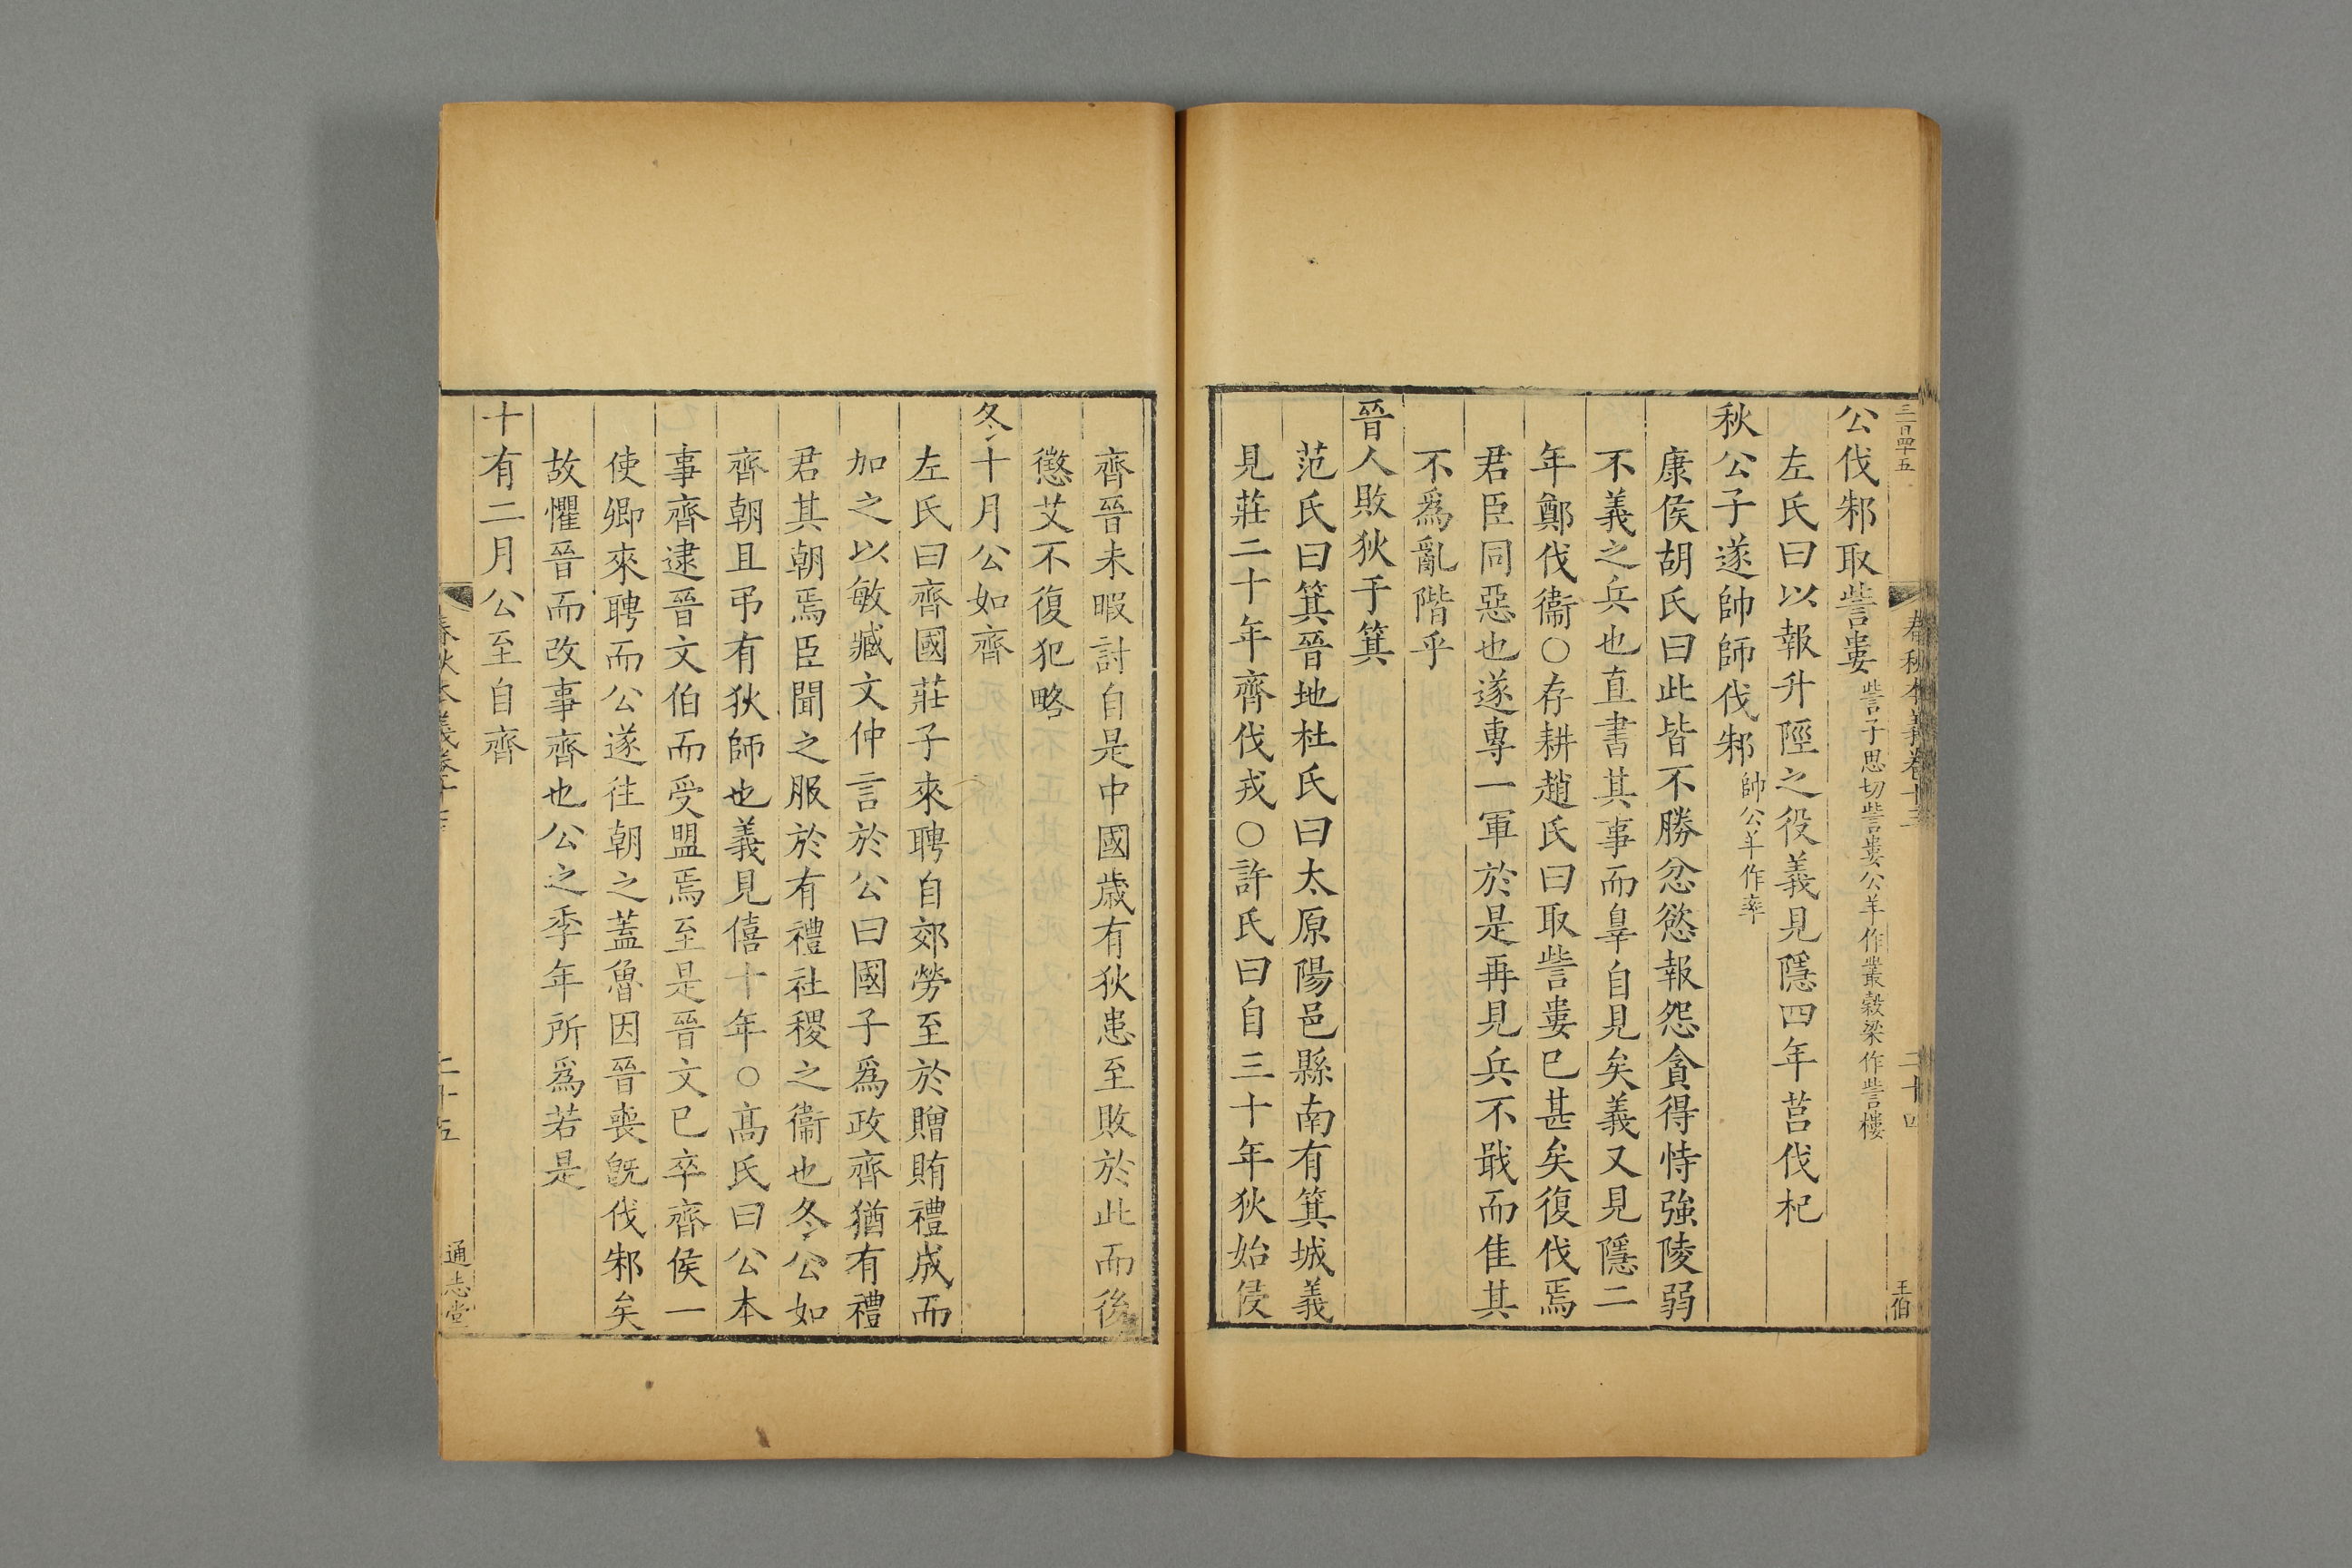 三百四十五
春秋本義卷十三
二十四
王伯
公伐邾取訾婁訾子思切訾婁公羊作叢穀梁作訾樓
左氏曰以報升陘之役義見隱四年莒伐杞
秋公子遂帥師伐邾帥公羊作率
康侯胡氏曰此皆不勝忿慾報怨貪得恃強陵弱
不義之兵也直書其事而辠自見矣義又見隱二
年鄭伐衞○存耕趙氏曰取訾婁已甚矣復伐焉
君臣同惡也遂專一軍於是再見兵不戢而隹其
不爲亂階乎
晉人敗狄于箕
范氏曰箕晉地杜氏曰太原陽邑縣南有箕城義
見莊二十年齊伐戎○許氏曰自三十年狄始侵
齊晉未暇討自是中國歲有狄患至敗於此而後
懲艾不復犯略
冬十月公如齊
左氏曰齊國莊子來聘自郊勞至於贈賄禮成而
加之以敏臧文仲言於公曰國子爲政齊猶有禮
君其朝焉臣聞之服於有禮社稷之衞也冬公如
齊朝且弔有狄師也義見僖十年○高氏曰公本
事齊逮晉文伯而受盟焉至是晉文已卒齊侯一
使卿來聘而公遂往朝之蓋魯因晉喪旣伐邾矣
故懼晉而改事齊也公之季年所爲若是
十有二月公至自齊
春秋本義卷十三
二十五
通志堂